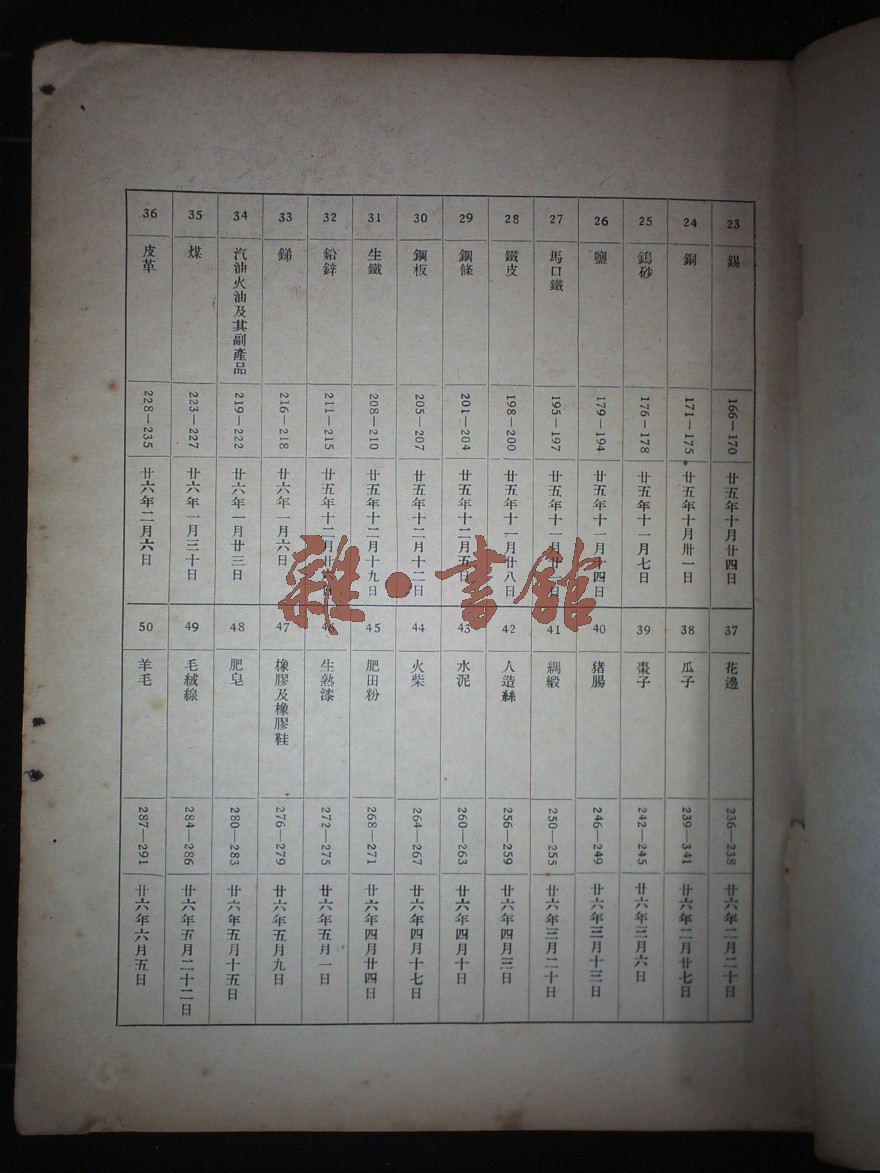 23 錫 166—170 廿五年十月廿四日
24 銅 171—175 廿五年十月卅一日
25 鎢砂 176—178 廿五年十一月七日
26 鹽 179—194 廿五年十一月十四日
27 馬口鐵 195—197 廿五年十一月廿日
28 鐵皮 198—200 廿五年十一月廿八日
29 鋼條 201—204 廿五年十二月五日
30 鋼板 205—207 廿五年十二月十二日
31 生鐵 208—210 廿五年十二月十九日
32 鉛鋅 211—215 廿五年十二月廿日
33 銻 216—218 廿六年一月六日
34 汽油火油及其副產品 219—222 廿六年一月廿三日
35 煤 223—227 廿六年一月三十日
36 皮革 228—235 廿六年二月六日
37 花邊 236—238 廿六年二月二十日
38 瓜子 239—341 廿六年二月廿七日
39 棗子 242—245 廿六年三月六日
40 猪腸 246—249 廿六年三月十三日
41 綢緞 250—255 廿六年三月二十日
42 人造絲 256—259 廿六年四月三日
43 水泥 260—263 廿六年四月十日
44 火柴 264—267 廿六年四月十七日
45 肥田粉 268—271 廿六年四月廿四日
46 生熟漆 272—275 廿六年五月一日
47 橡膠及橡膠鞋 276—279 廿六年五月九日
48 肥皂 280—283 廿六年五月十五日
49 毛絨線 284—286 廿六年五月二十二日
50 羊毛 287—291 廿六年六月五日
雜·書館